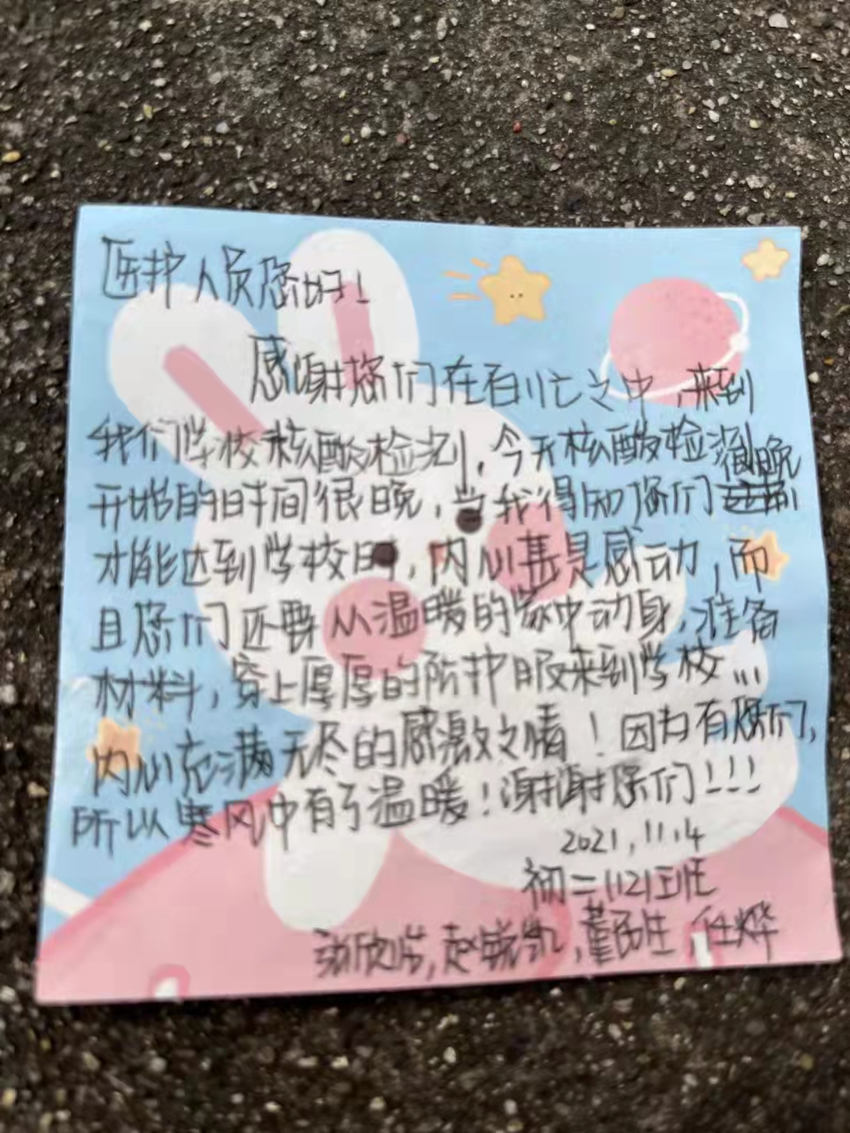 医护人员您好！
感谢您们在百忙之中，来到
我们学校核酸检测，今天核酸检测很晚
开始的时间很晚，当我得知您们
才能达到学校时，内心甚是感动，而
且您们还要从温暖的家中动身，准备
材料，穿上厚厚的防护服来到学校...
内心充满无尽的感激之情！因为有您们，
所以寒风中有了温暖！谢谢您们！！！
2021.11.4
初二(12)班
赵锐凯，董 生 任烨